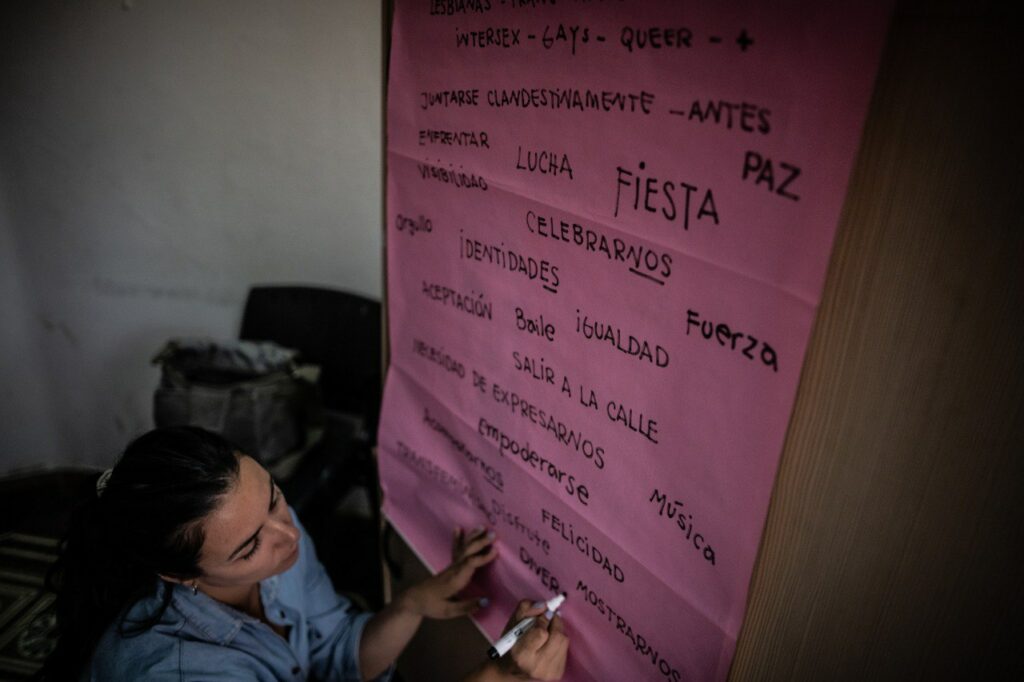 LESBIANAS - TRANS
INTERSEX - GAYS - QUEER - +
JUNTARSE CLANDESTINAMENTE - ANTES
ENFRENTAR
LUCHA
FIESTA
PAZ
VISIBILIDAD
CELEBRARNOS
Orgullo
IDENTIDADES
ACEPTACIÓN
Baile
IGUALDAD
Fuerza
SALIR A LA CALLE
NECESIDAD DE EXPRESARNOS
Empoderarse
MÚSICA
FELICIDAD
Disfrute
DIVER
MOSTRARNOS